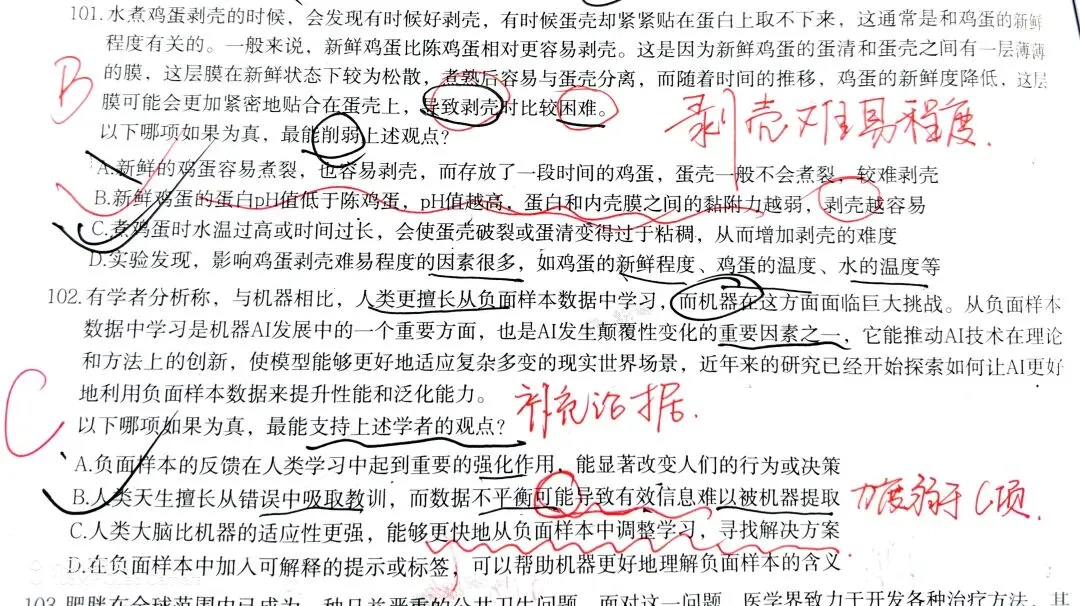 101.水煮鸡蛋剥壳的时候，会发现有时候好剥壳，有时候蛋壳却紧紧贴在蛋白上取不下来，这通常是和鸡蛋的新鲜
程度有关的。一般来说，新鲜鸡蛋比陈鸡蛋相对更容易剥壳。这是因为新鲜鸡蛋的蛋清和蛋壳之间有一层薄薄
的膜，这层膜在新鲜状态下较为松散，煮熟后容易与蛋壳分离，而随着时间的推移，鸡蛋的新鲜度降低，这层
B
膜可能会更加紧密地贴合在蛋壳上，导致剥壳时比较困难。
剥壳难易程度.
以下哪项如果为真，最能削弱上述观点？
A.新鲜的鸡蛋容易煮裂，也容易剥壳，而存放了一段时间的鸡蛋，蛋壳一般不会煮裂，较难剥壳
B.新鲜鸡蛋的蛋白pH值低于陈鸡蛋，pH值越高，蛋白和内壳膜之间的黏附力越弱，剥壳越容易
C.煮鸡蛋时水温过高或时间过长，会使蛋壳破裂或蛋清变得过于粘稠，从而增加剥壳的难度
D.实验发现，影响鸡蛋剥壳难易程度的因素很多，如鸡蛋的新鲜程度、鸡蛋的温度、水的温度等
102.有学者分析称，与机器相比，人类更擅长从负面样本数据中学习，而机器在这方面面临巨大挑战。从负面样本
数据中学习是机器AI发展中的一个重要方面，也是AI发生颠覆性变化的重要因素之一，它能推动AI技术在理论
和方法上的创新，使模型能够更好地适应复杂多变的现实世界场景，近年来的研究已经开始探索如何让AI更好
地利用负面样本数据来提升性能和泛化能力。
C
补充论据.
以下哪项如果为真，最能支持上述学者的观点？
A.负面样本的反馈在人类学习中起到重要的强化作用，能显著改变人们的行为或决策
B.人类天生擅长从错误中吸取教训，而数据不平衡可能导致有效信息难以被机器提取
力度弱于C项.
C.人类大脑比机器的适应性更强，能够更快地从负面样本中调整学习，寻找解决方案
D.在负面样本中加入可解释的提示或标签，可以帮助机器更好地理解负面样本的含义
103.肥胖在全球范围内已成为一种日益严重的公共卫生问题，面对这一问题，医学界致力于开发各种治疗方法，其